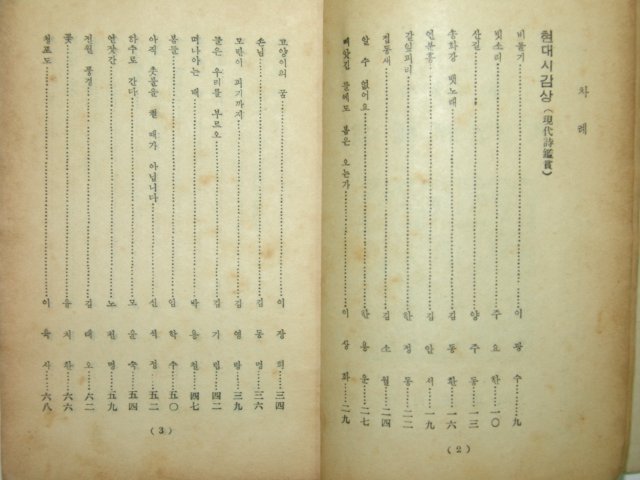 차 례
현대시감상(現代詩鑑賞)
비둘기……이 광 수……九
빗소리……주 요 한……一〇
산길……양 주 동……一三
송화강 뱃노래……김 동 환……一六
연분홍……김 안 서……一九
갈잎피리……한 정 동
접동새……김 소 월……二四
알 수 없어요……한 용 운……二七
빼앗긴 들에도 봄은 오는가……이 상 화……二九
(2)
고양이의 꿈……이 장 희……三四
손님……김 동 명……三六
모란이 피기까지……김 영 랑……三九
우리를 부르오……김 기 림……四二
떠나가는 배……박 용 철……四七
임 학 수……五〇
아직 촛불을 켤 때가 아닙니다……신 석 정……五二
하수로 간다……모 윤 숙……五四
연잣간……노 천 명……五九
전원 풍경……김 태 오……六二
꽃……유 치 환……六六
청포도……이 육 사……六八
(3)